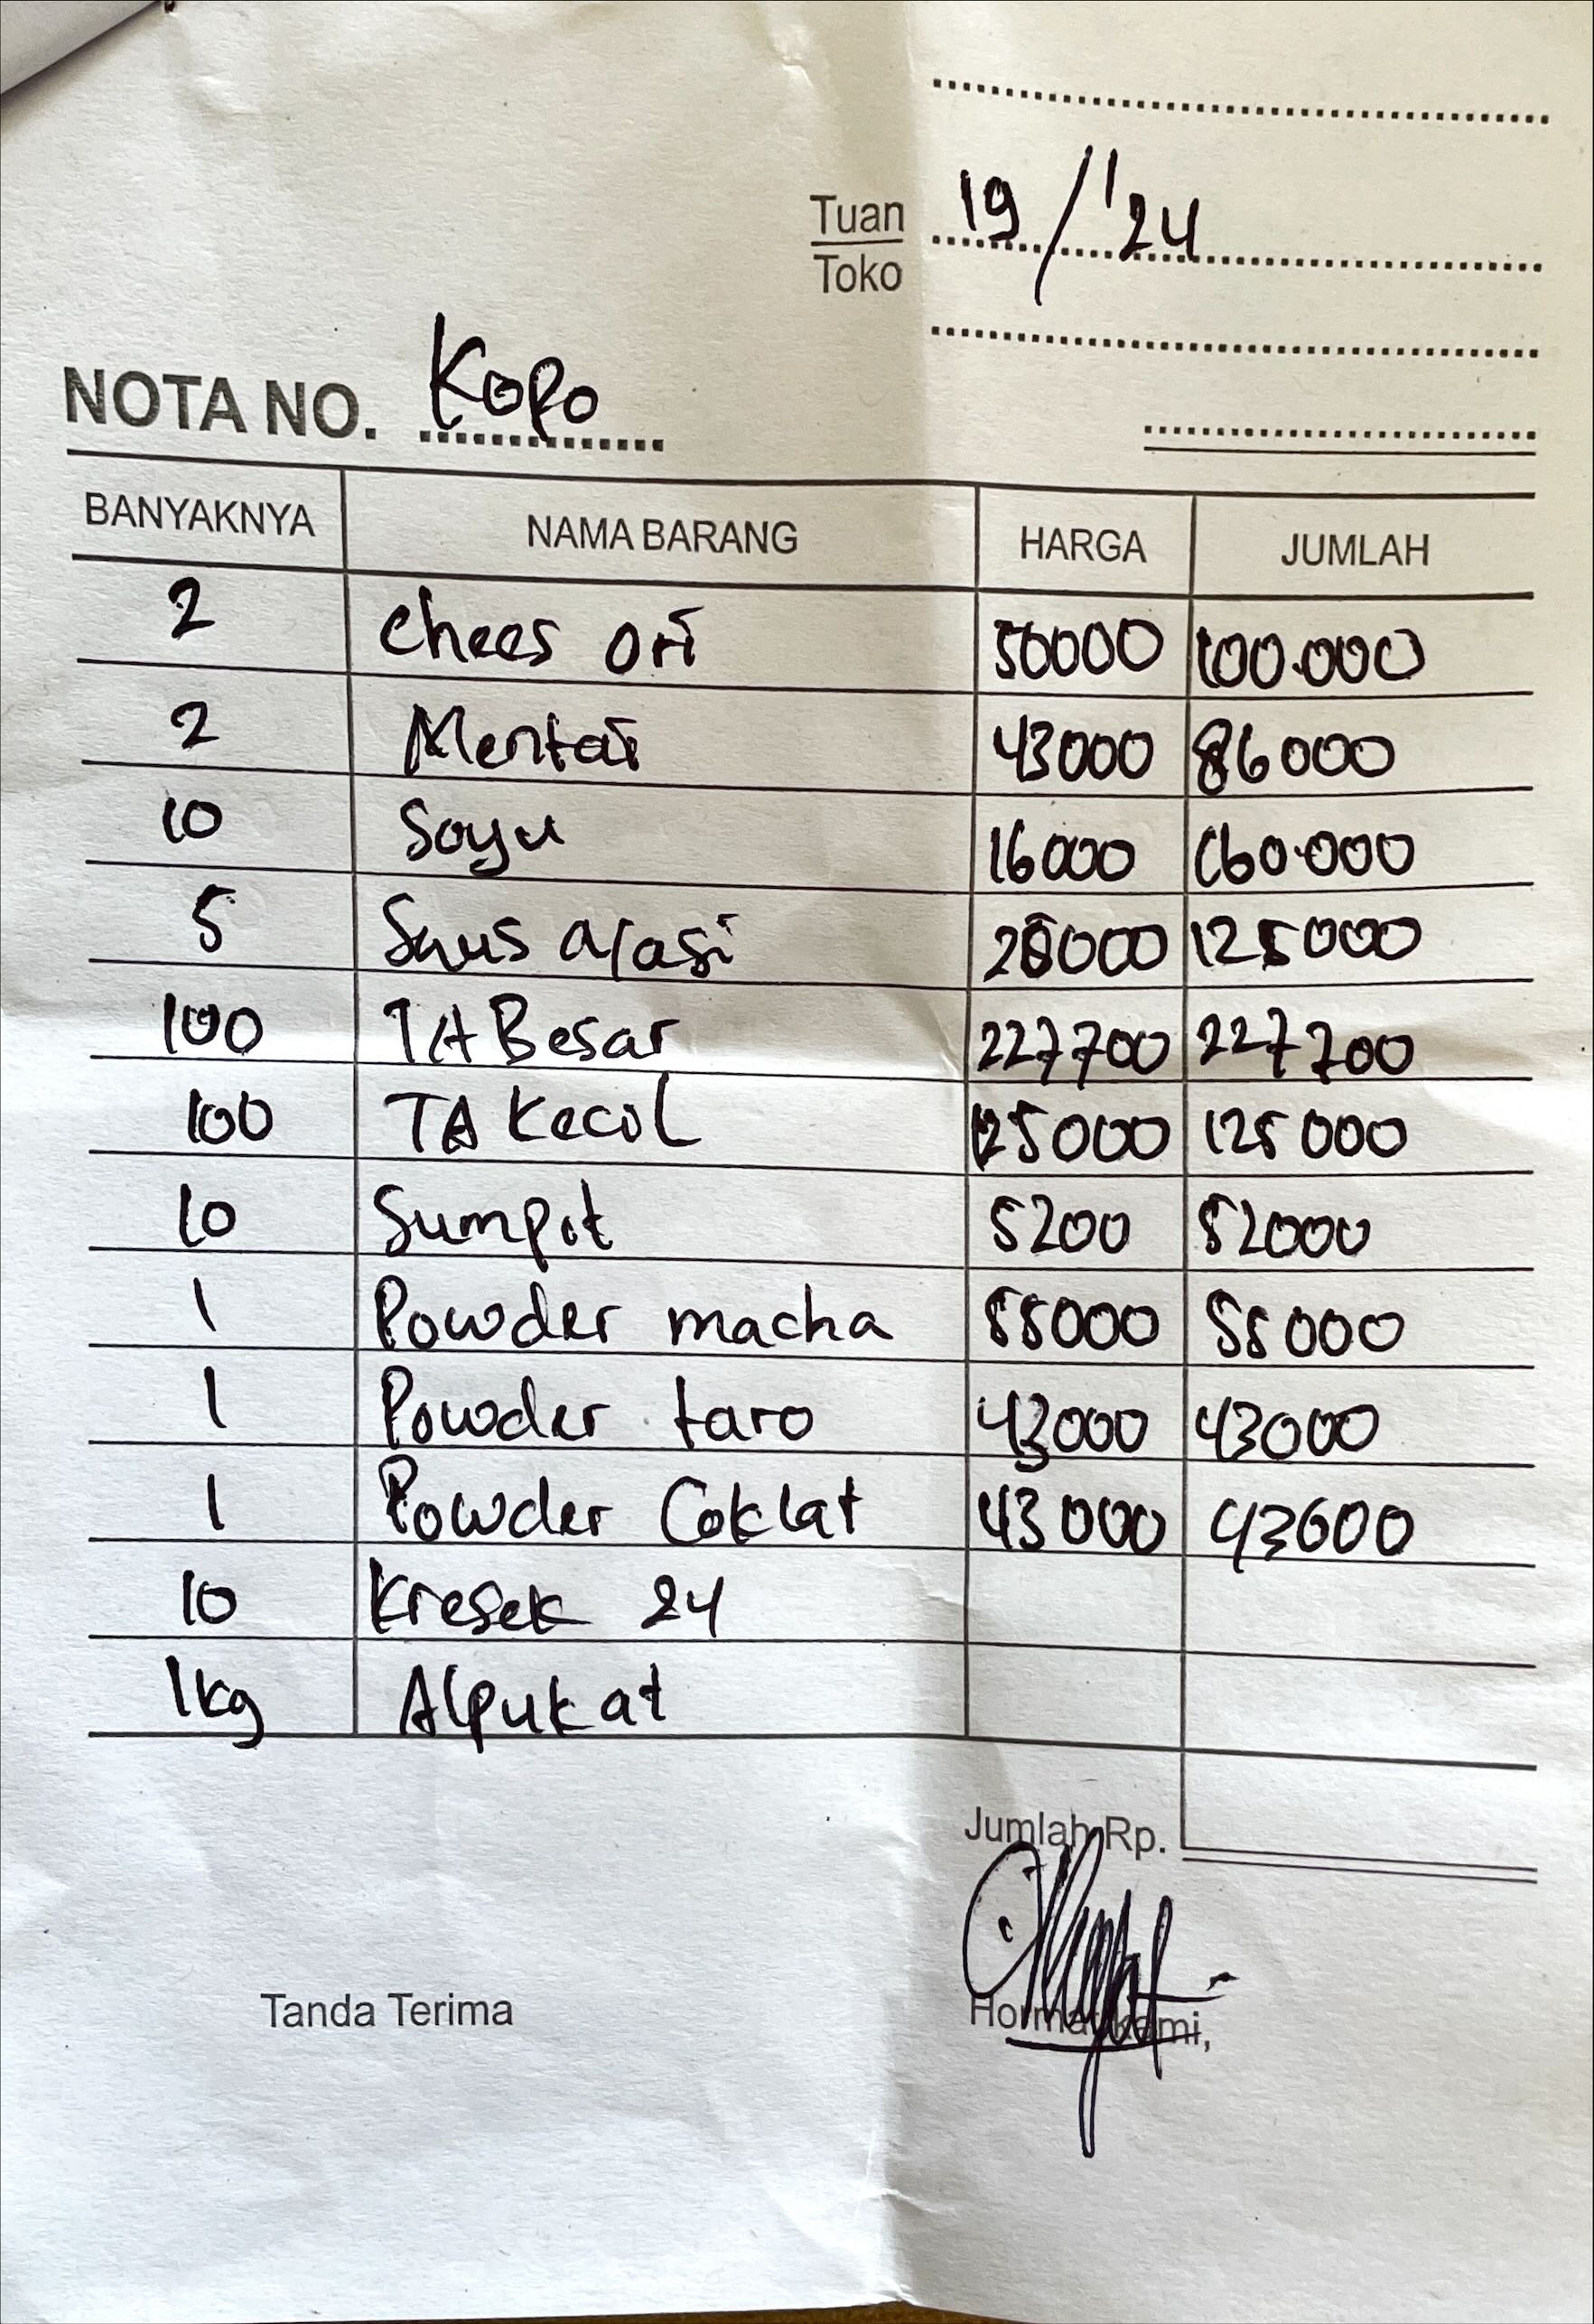 Tuan
Toko
19/1'24
NOTA NO. Kopo
BANYAKNYA NAMA BARANG HARGA JUMLAH
2 Chees ori 50000 100.000
2 Mentai 43000 86000
10 Soyu 16000 160.000
5 Saus a/asi 125000
100 TA Besar 227700 227700
100 TA Kecil 125000 125000
10 Sumpit 5200 52000
1 Powder macha 55000 55000
1 Powder taro 43000 43000
1 Powder Coklat 43000 43000
10 Kresek 24
1kg Alpukat
Jumlah Rp.
Tanda Terima Hormat kami,